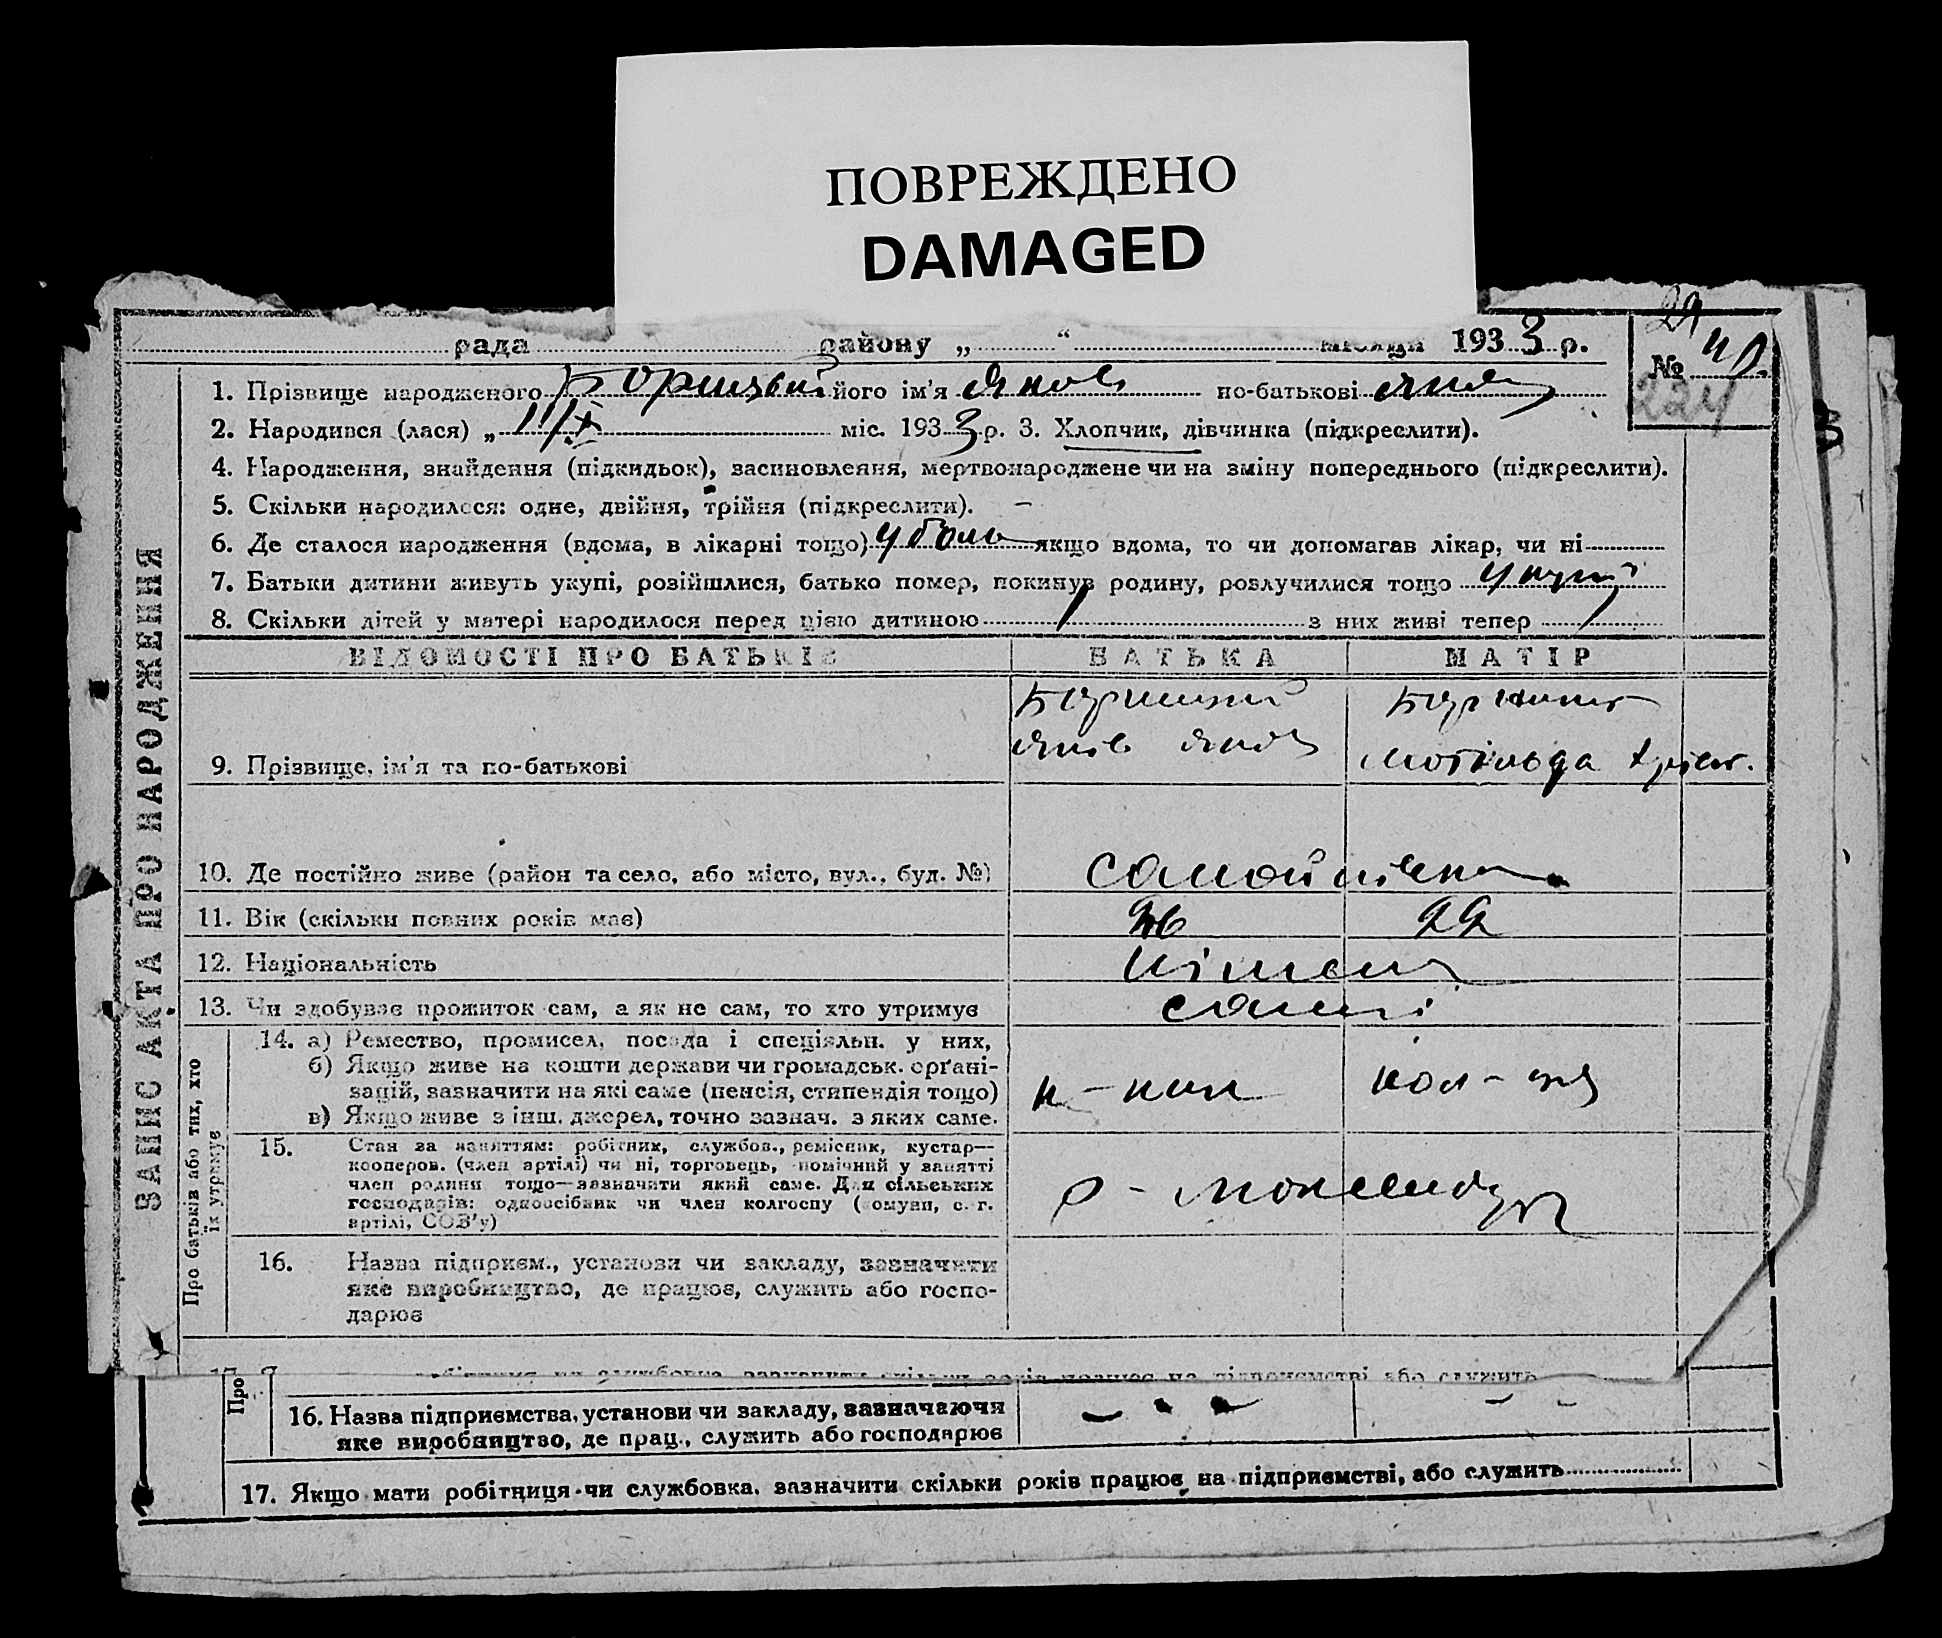 ПОВРЕЖДЕНО
DAMAGED
рада району „ “ місяця 1933 р.
№
224
1. Прізвище народженого його ім'я Яков по-батькові
2. Народився (лася) „ 11/X міс. 1933 р. 3. Хлопчик, дівчинка (підкреслити).
4. Народження, знайдення (підкидьок), засиновлення, мертвонароджене чи на зміну попереднього (підкреслити).
5. Скільки народилося: одне, двійня, трійня (підкреслити). –
6. Де сталося народження (вдома, в лікарні тощо) якщо вдома, то чи допомагав лікар, чи ні
7. Батьки дитини живуть укупі, розійшлися, батько помер, покинув родину, розлучилися тощо укупі
8. Скільки дітей у матері народилося перед цією дитиною 1 з них живі тепер 1
ЗАПИС АКТА ПРО НАРОДЖЕННЯ
ВІДОМОСТІ ПРО БАТЬКІВ БАТЬКА МАТІР
9. Прізвище, ім'я та по-батькові
Яків
Мотільда
10. Де постійно живе (район та село, або місто, вул., буд. №) Самойлівка
11. Вік (скільки повних років має) 26 22
12. Національність німець
13. Чи здобуває прожиток сам, а як не сам, то хто утримує самі
Про батьків або тих, хто їх утримує
14. а) Ремество, промисел, посада і спеціяльн. у них,
б) Якщо живе на кошти держави чи громадськ. орґані-
зацій, зазначити на які саме (пенсія, стипендія тощо)
в) Якщо живе з інш. джерел, точно зазнач. з яких саме.
15. Стан за заняттям: робітник, службов., ремісник, кустар—
кооперов. (член артілі) чи ні, торговець, помічний у занятті
член родини тощо—зазначити який саме. Для сільських
господарів: одноосібник чи член колгоспу (комуни, с.-г.
артілі, СОЗ'у)
16. Назва підприєм., установи чи закладу, зазначити
яке виробництво, де працює, служить або госпо-
дарює
Про
16. Назва підприємства, установи чи закладу, зазначаючи
яке виробництво, де прац., служить або господарює
17. Якщо мати робітниця чи службовка, зазначити скільки років працює на підприємстві, або служить